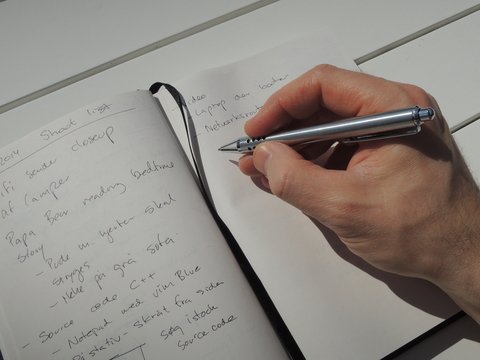 2014
Shoot list
fi sender closeup
af Camper
Papa Bear reading bedtime
story
- Pude m. hjerter skal
stryges
- Nehe på grå sofa
- Source code C++
- Notepad med Jim Blue
stativ skråt fra side
søg istock
source code
deo
Laptop
Networks